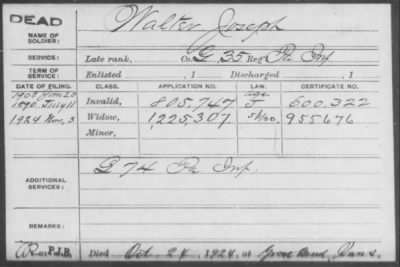 DEAD
NAME OF SOLDIER: Walter, Joseph
SERVICE: Late rank, Co. G, 35 Reg't Pa Inf.
TERM OF SERVICE: Enlisted , 1 Discharged , 1
DATE OF FILING. CLASS. APPLICATION NO. LAW. CERTIFICATE NO.
1890 July 11 Invalid, 805.747 J 600.322
1924 Nov. 3 Widow, 1,225,307 955676
Minor,
ADDITIONAL SERVICES: G 74 Pa Inf.
REMARKS:
P.J.B. Died Oct. 24, 1924, at Bend, Kans.